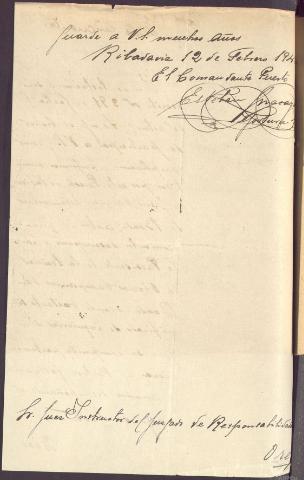 guarde a V.S. muchos años
Ribadavia 12 de Febrero 194
El Comandante Puesto
Esteban
Sr. Juez Instructor del Juzgado de Responsabilidades
Ore